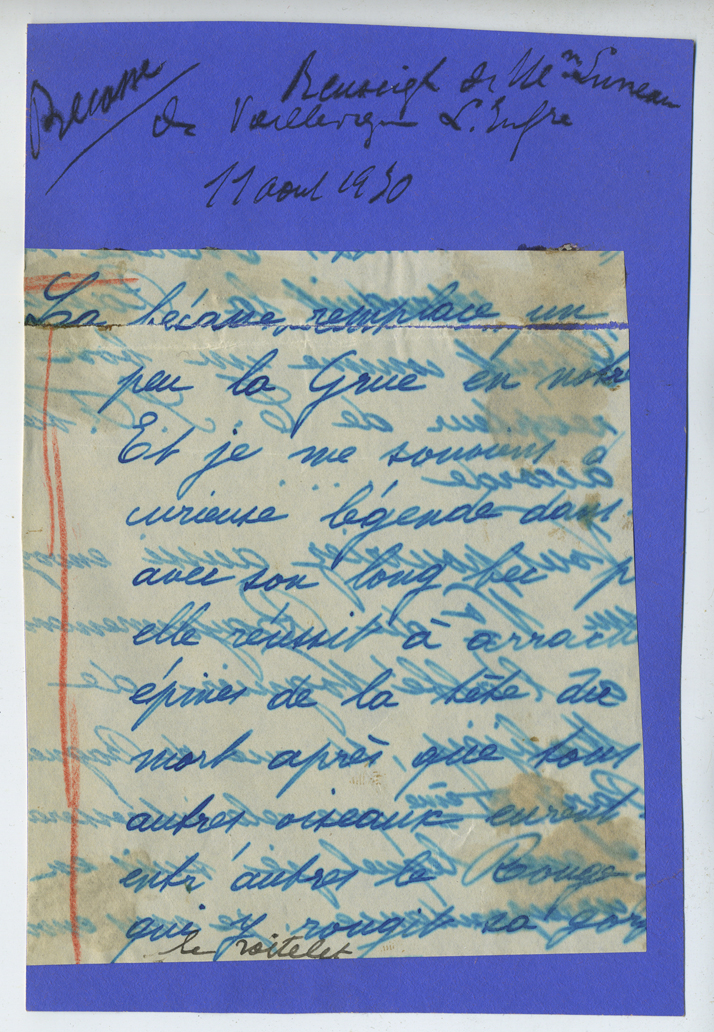 Becasse
Renseigt de Mem Luneau
de Vieillevigne L. Infre
11 aout 1930
La bécasse, remplace un
peu la Grue en notre
Et je me souviens
curieuse légende dans
avec son long bec p
elle réussit à arrach
épines de la tête du
mort après, que tous
autres oiseaux eurent
entr'autres le Rouge-
qui y rougit sa gor
le roitelet